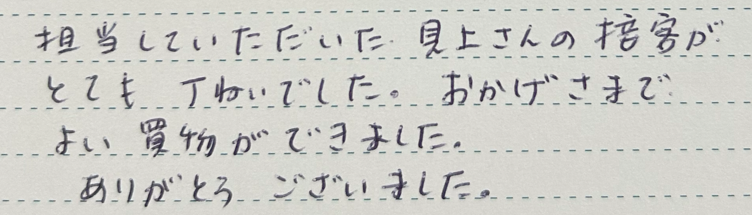 担当していただいた 見上さんの 接客が
とても 丁ねいでした。 おかげさまで
よい 買物ができました。
ありがとう ございました。